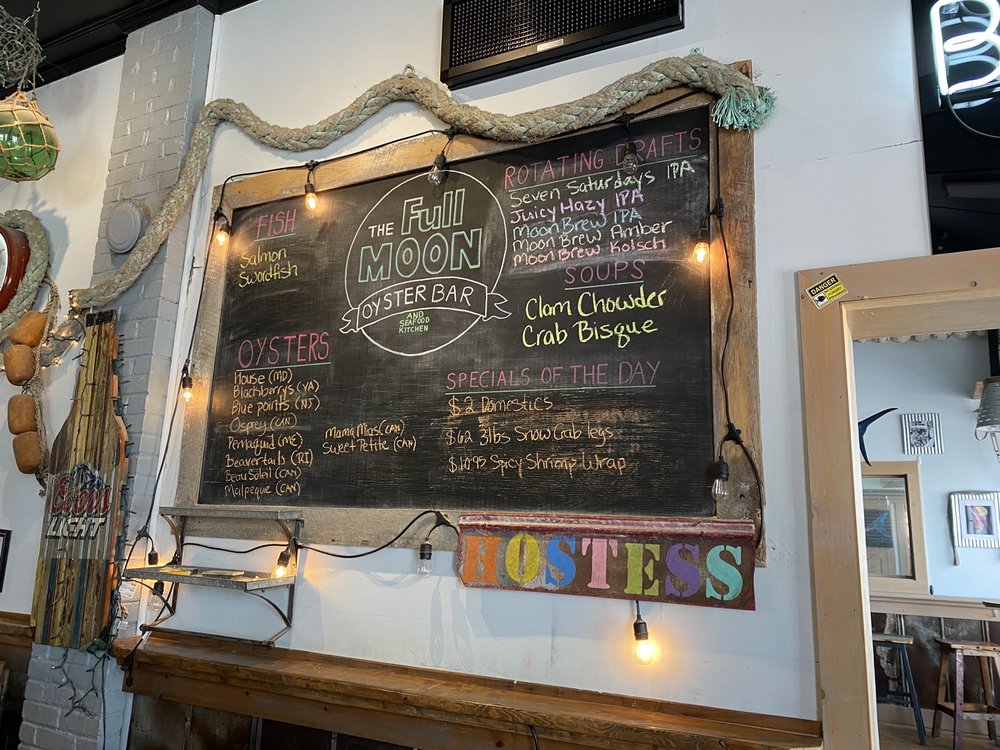 FISH
Salmon
Swordfish
OYSTERS
House (MD)
Blackberrys (VA)
Blue points (NJ)
Osprey (CAN)
Pemaquid (ME)
Beavertails (RI)
Beau Soleil (CAN)
Malpeque (CAN)
Mama Mias (CAN)
Sweet Petite (CAN)
THE Full
MOON
OYSTER BAR
AND
SEAFOOD
KITCHEN
ROTATING DRAFTS
Seven Saturdays IPA
Juicy Hazy IPA
Moon Brew IPA
Moon Brew Amber
Moon Brew Kolsch
SOUPS
Clam Chowder
Crab Bisque
SPECIALS OF THE DAY
$2 Domestics
$62 3lbs Snow Crab legs
$10.95 Spicy Shrimp Wrap
HOSTESS
Coors
LIGHT
DANGER
B